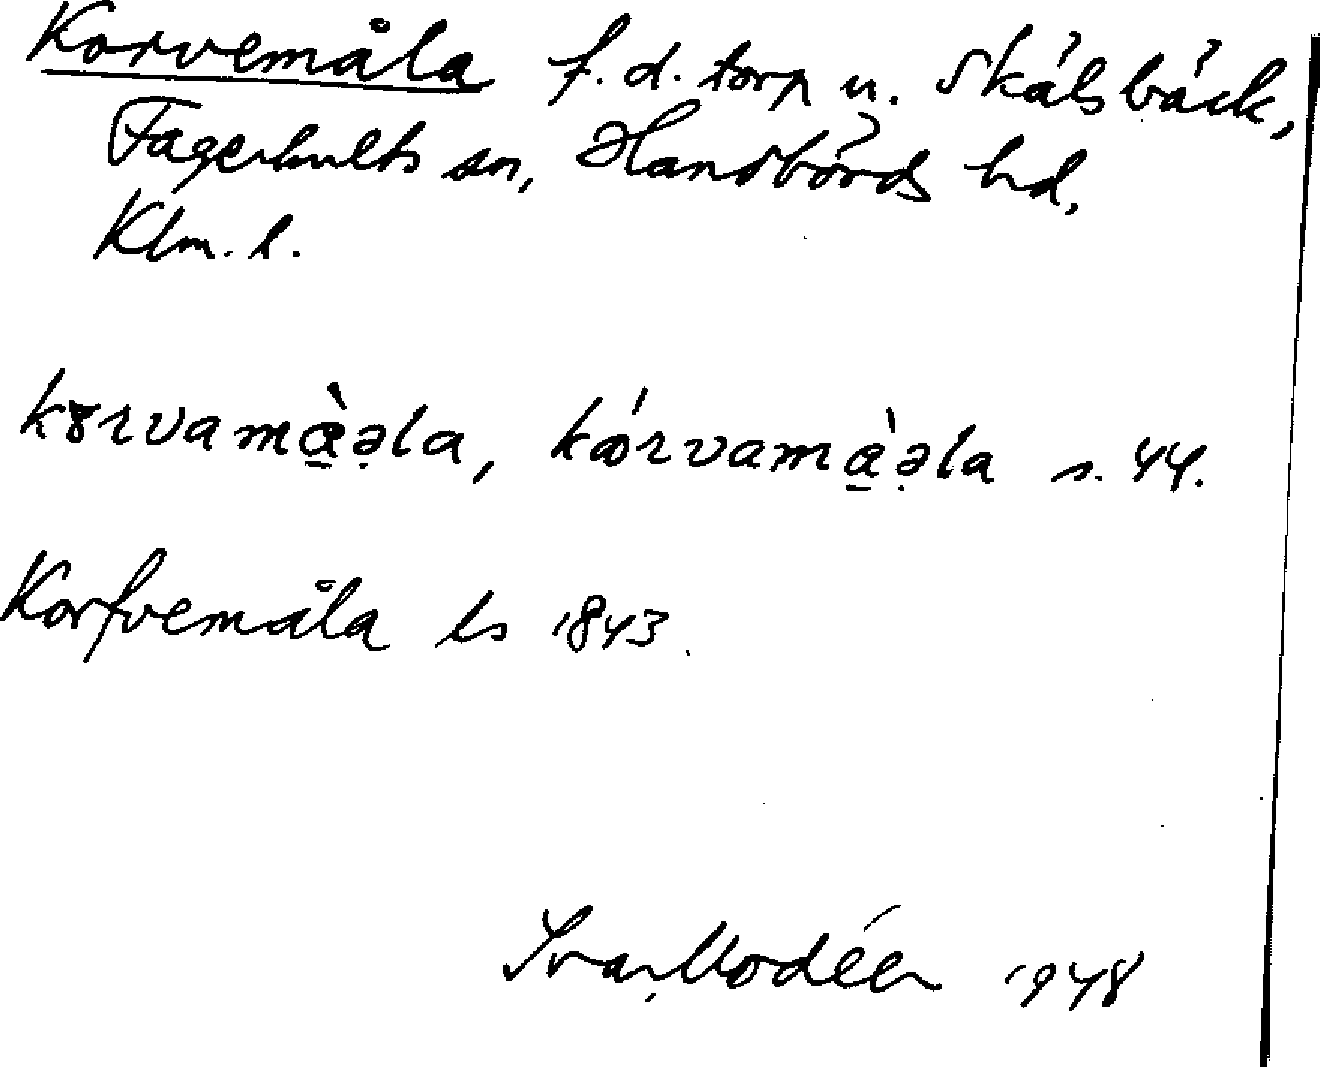 Korvemåla f. d. torp u. Skälsbäck,
Fagerhults sn, Handbörds hd,
Klm. l.
kɤrvamàəla, kórvamàəla s. 44.
Korfvemåla ls 1843.
Ivar Modéer 1948